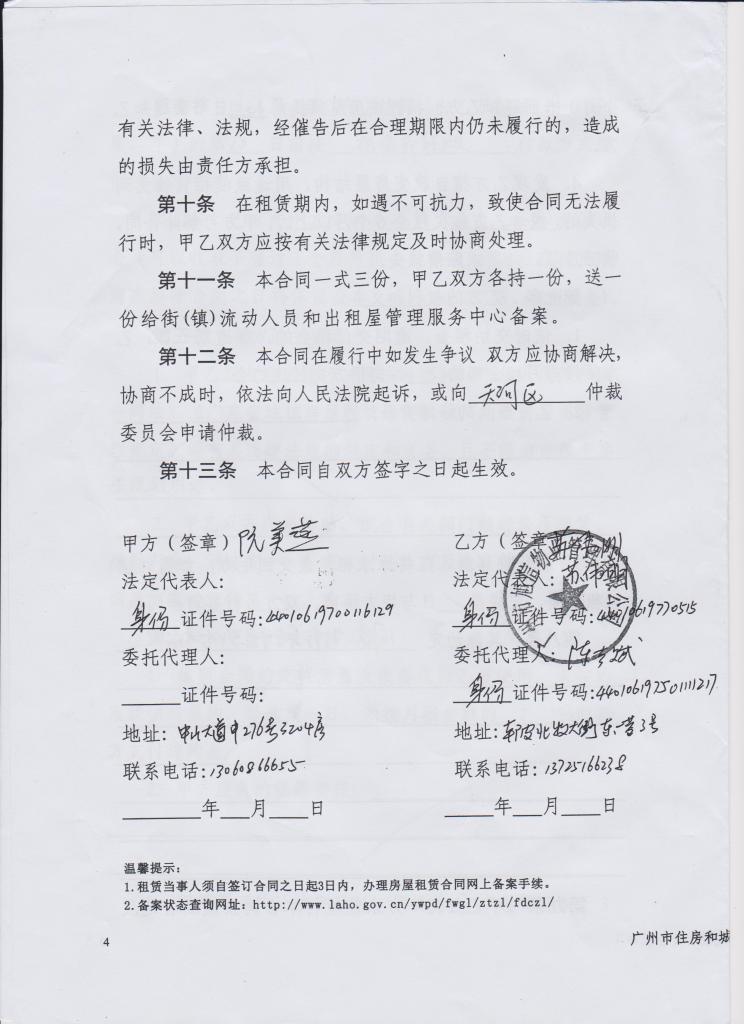 有关法律、法规，经催告后在合理期限内仍未履行的，造成
的损失由责任方承担。
第十条 在租赁期内，如遇不可抗力，致使合同无法履
行时，甲乙双方应按有关法律规定及时协商处理。
第十一条 本合同一式三份，甲乙双方各持一份，送一
份给街(镇)流动人员和出租屋管理服务中心备案。
第十二条 本合同在履行中如发生争议 双方应协商解决，
协商不成时，依法向人民法院起诉，或向 天河区 仲裁
委员会申请仲裁。
第十三条 本合同自双方签字之日起生效。
甲方（签章）阮美燕
法定代表人：
身份 证件号码：44010619700116129
委托代理人：
证件号码：
地址：中山大道中276号3204房
联系电话：13060866655
年 月 日
乙方（签章）
法定代表人：苏伟
身份 证件号码：
委托代理人：陈志斌
身份 证件号码：44010619750111217
地址：东一巷3号
联系电话：13725166238
年 月 日
温馨提示：
1.租赁当事人须自签订合同之日起3日内，办理房屋租赁合同网上备案手续。
2.备案状态查询网址：http://www.laho.gov.cn/ywpd/fwgl/ztzl/fdczl/
4
广州市住房和城